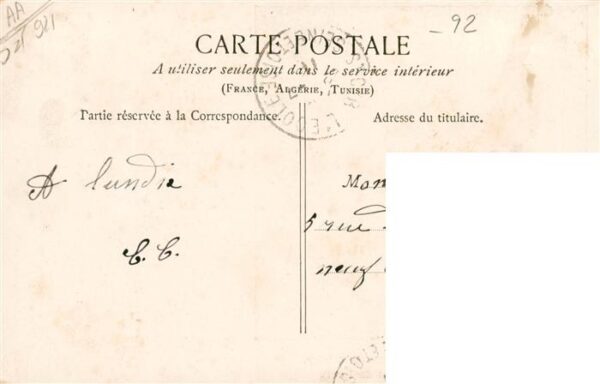 AA
921
_ 92
CARTE POSTALE
A utiliser seulement dans le service intérieur
(FRANCE, ALGÉRIE, TUNISIE)
Partie réservée à la Correspondance.
Adresse du titulaire.
A lundi
Mon
5 rue
neuf